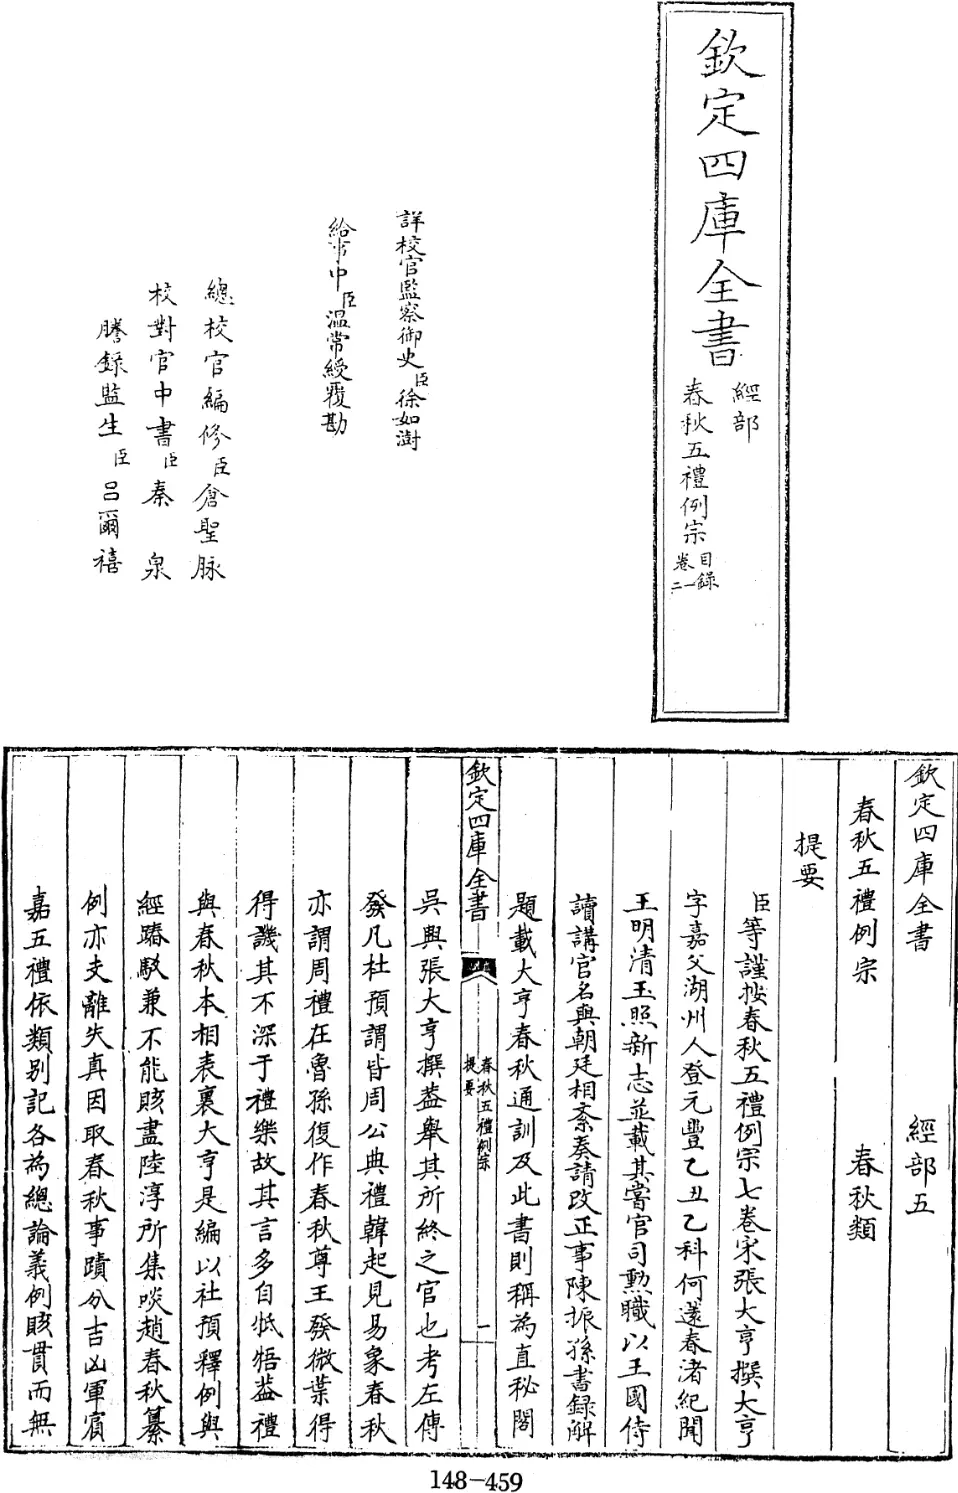 欽定四庫全書
經部
春秋五禮例宗
目録
卷一
二
詳校官監察御史臣徐如澍
給事中臣温常綬覆勘
總校官編修臣倉聖脉
校對官中書臣秦泉
謄錄監生臣呂爾禧
欽定四庫全書 經部五
春秋五禮例宗 春秋類
提要
臣等謹按春秋五禮例宗七卷宋張大亨撰大亨
字嘉父湖州人登元豐乙丑乙科何薳春渚紀聞
王明清玉照新志並載其嘗官司勲職以王國侍
讀講官名與朝廷相紊奏請改正事陳振孫書録解
題載大亨春秋通訓及此書則稱為直秘閣
欽定四庫全書
春秋五禮例宗
提要
一
吳興張大亨撰葢舉其所終之官也考左傳
發凡杜預謂皆周公典禮韓起見易象春秋
亦謂周禮在魯孫復作春秋尊王發微葉得
得譏其不深于禮樂故其言多自牴牾葢禮
與春秋本相表裏大亨是編以社預釋例與
經踳駮兼不能賅盡陸淳所集啖趙春秋纂
例亦支離失真因取春秋事蹟分吉凶軍賓
嘉五禮依類别記各為總論義例賅貫而無
148-459